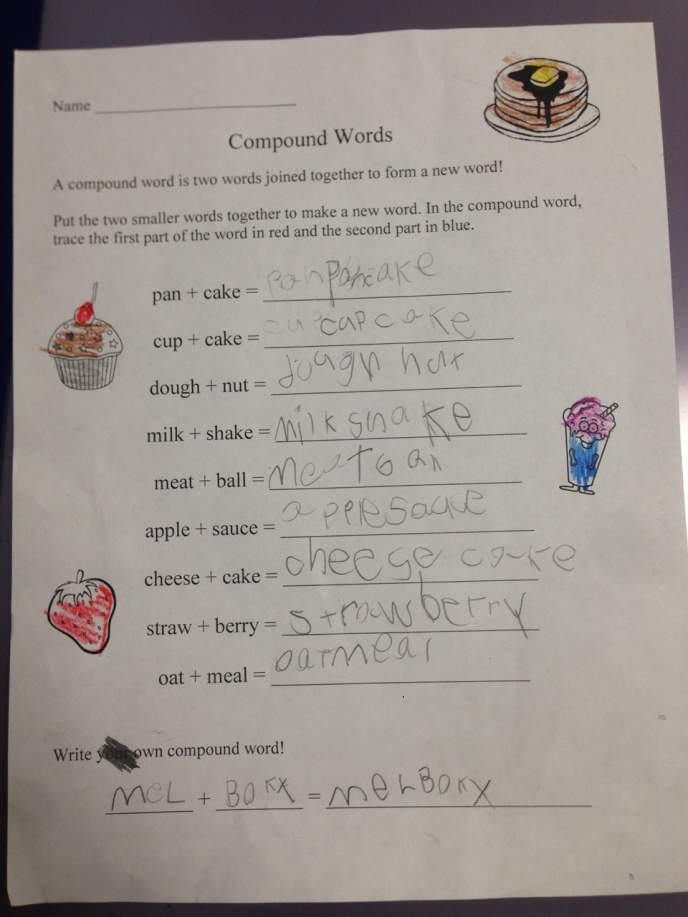 Name
Compound Words
A compound word is two words joined together to form a new word!
Put the two smaller words together to make a new word. In the compound word,
trace the first part of the word in red and the second part in blue.
pan + cake = pan pancake
cup + cake = cup cupcake
dough + nut = dough nut
milk + shake = milk shake
meat + ball =
apple + sauce =
cheese + cake = cheese cake
straw + berry = strawberry
oat + meal = oatmeal
Write your own compound word!
MeL + BOXX = MeLBOXX